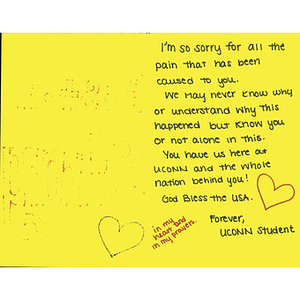 I'm so sorry for all the
pain that has been
caused to you.
We may never know why
or understand why this
happened but know you
or not alone in this.
You have us here at
UCONN and the whole
nation behind you!
God Bless the USA.
in my
heart and
in my prayers.
Forever,
UCONN Student